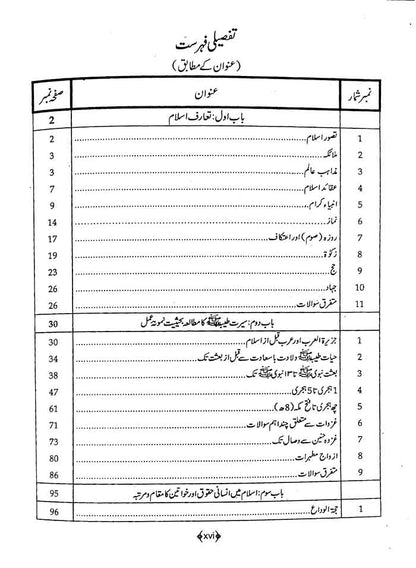 تفصیلی فہرست
(عنوان کے مطابق)
نمبر شمار عنوان صفحہ نمبر
باب اول: تعارف اسلام 2
1 تصور اسلام 2
2 ملائکہ 3
3 مذاہب عالم 3
4 عقائد اسلام 7
5 انبیاء کرام 9
6 نماز 14
7 روزہ (صوم) اور اعتکاف 17
8 زکوٰۃ 19
9 حج 23
10 جہاد 26
11 متفرق سوالات 26
باب دوم: سیرت طیبہ ﷺ کا مطالعہ بحیثیت نمونہ عمل 30
1 جزیرۃ العرب اور عرب قبل از اسلام 30
2 حیات طیبہ ﷺ ولادت باسعادت سے قبل از بعثت تک 34
3 بعثت نبوی ﷺ تا ۱۳ نبوی ﷺ تک 38
4 1 ہجری تا 5 ہجری 47
5 چھ ہجری تا فتح مکہ (8ھ) 61
6 غزوات سے متعلق چند اہم سوالات 71
7 غزوہ حنین سے وصال تک 73
8 ازواج مطہرات 80
9 متفرق سوالات 86
باب سوم: اسلام میں انسانی حقوق اور خواتین کا مقام و مرتبہ 95
1 حجۃ الوداع 96
﴿xvi﴾